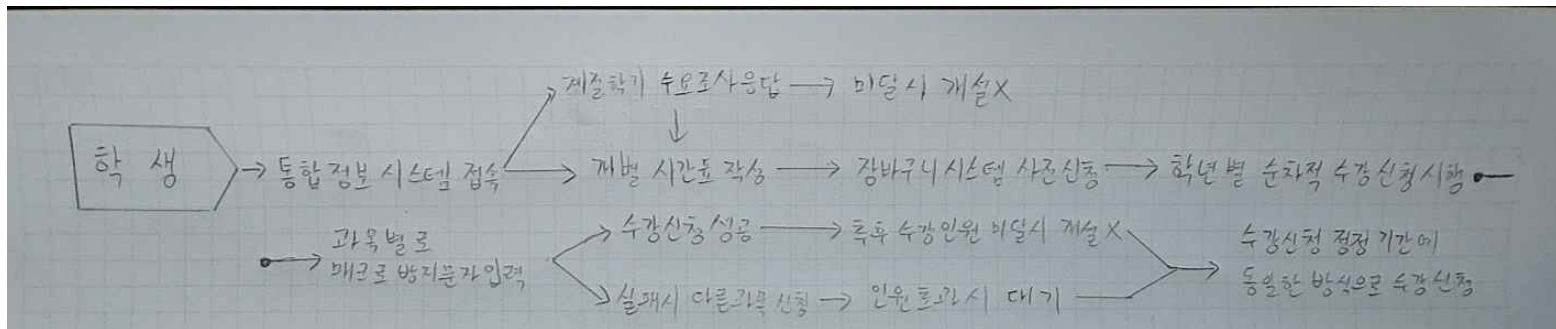 계절학기 수요조사응답 → 미달시 개설X
↓
학생 → 통합정보시스템 접속 → 개별 시간표 작성 → 장바구니시스템 사전신청 → 학년별 순차적 수강신청시행
과목별로
매크로 방지문자입력
수강신청성공 → 추후 수강인원 미달시 개설X
실패시 다른과목신청 → 인원초과시 대기
수강신청 정정기간에
동일한 방식으로 수강신청